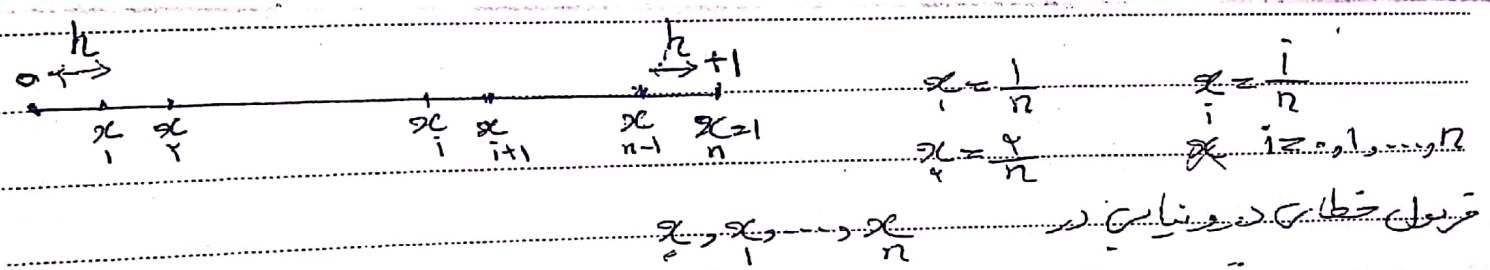 h h
0 +1
x₁ x₂ xᵢ xᵢ₊₁ xₙ₋₁ xₙ=1
x₁ = 1/n xᵢ = i/n
x₂ = ۲/n i = ۰, 1, ..., n
فرمول خطای درونیابی در x₀, x₁, ..., xₙ